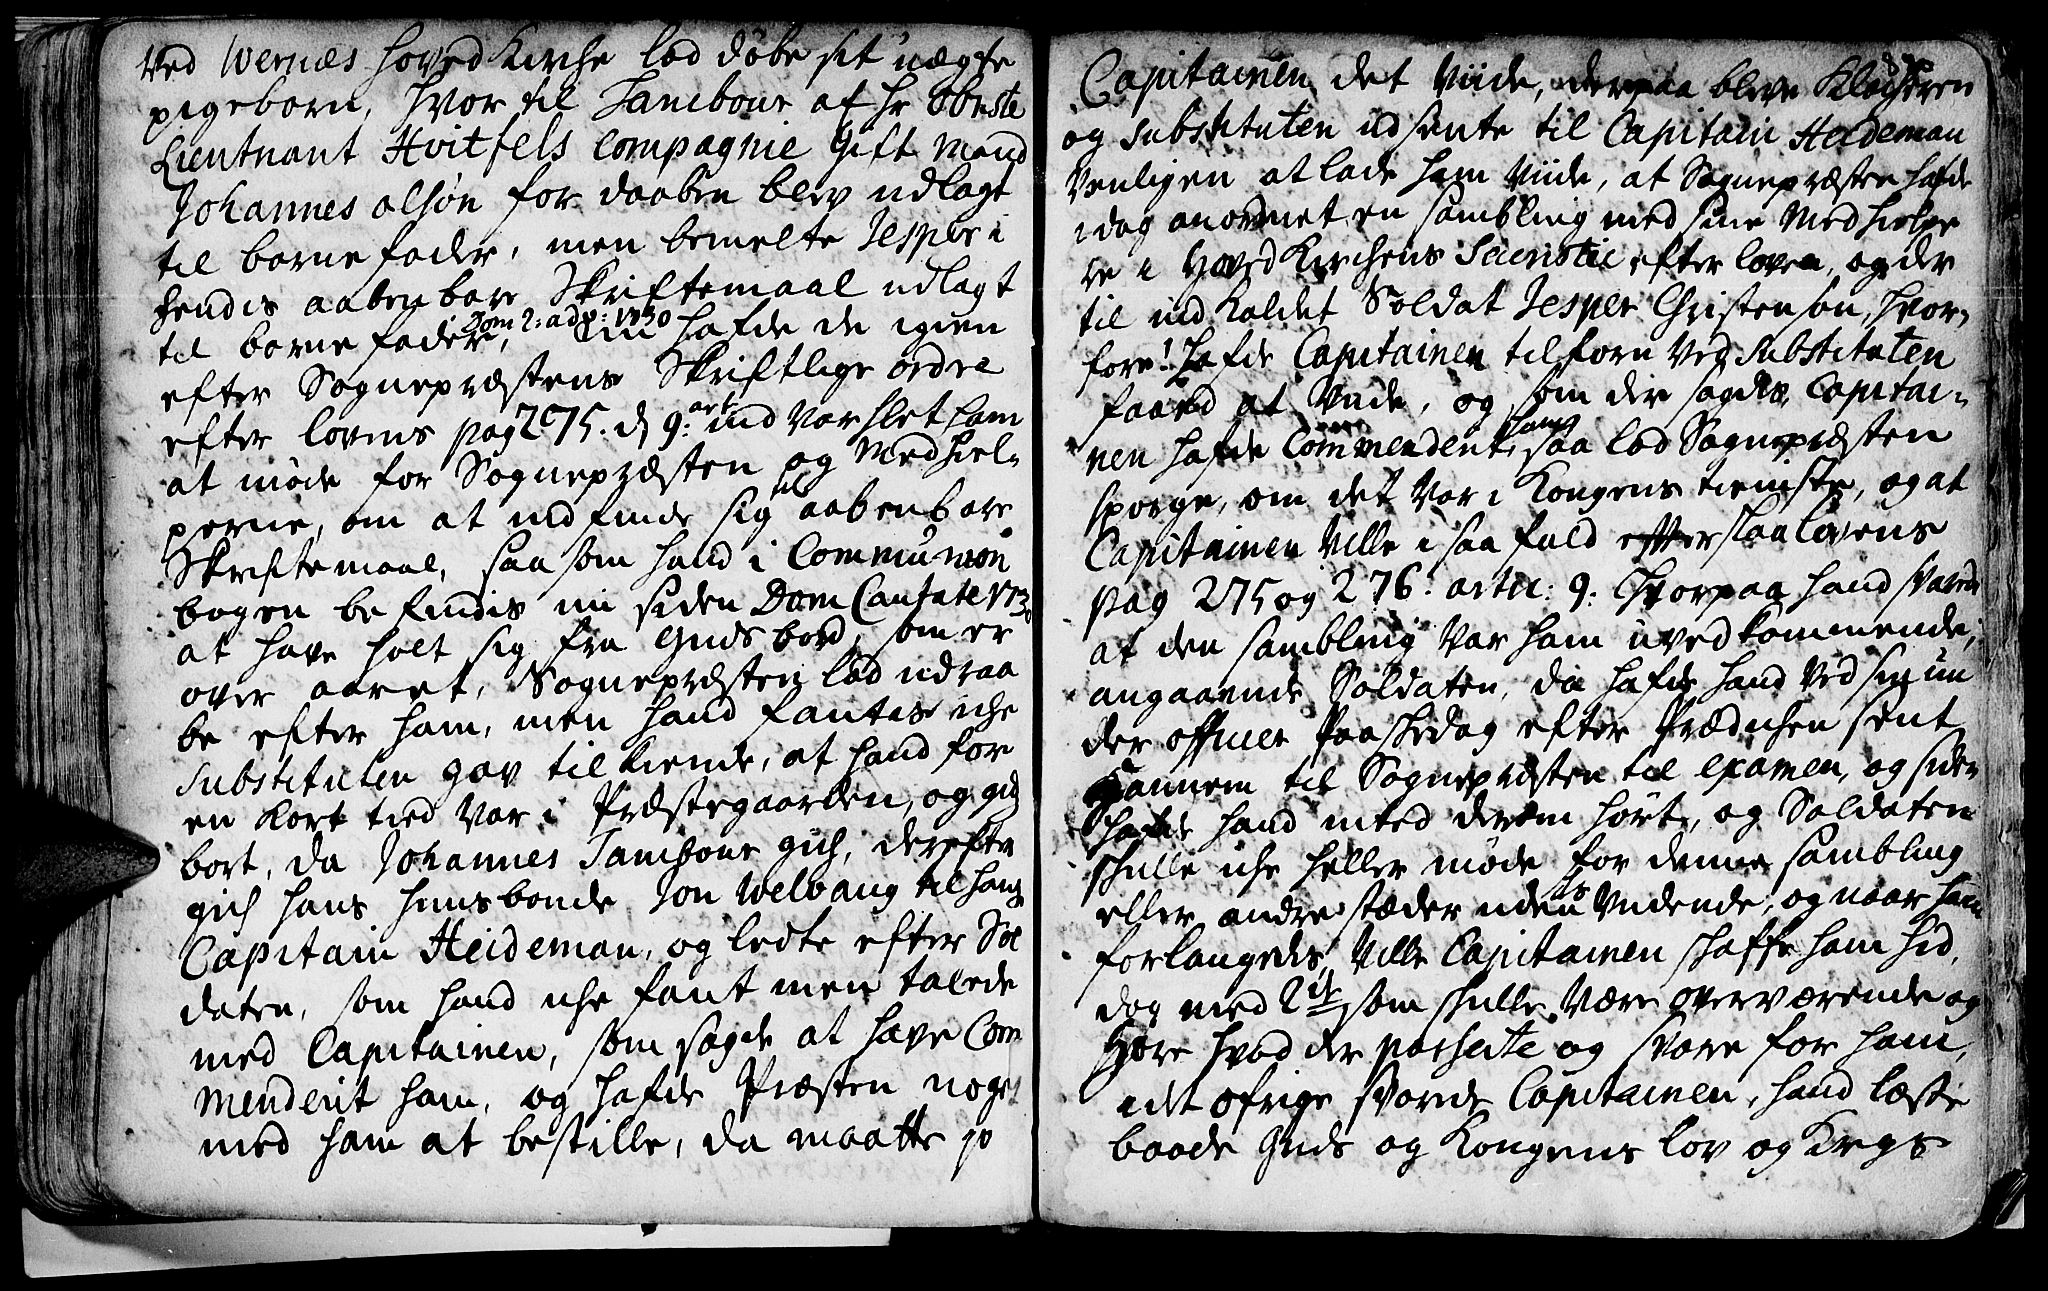 Ved Wernæs hoved Kirche lod døbe sit uægte
pigebarn, hvor til Tambour af Hr Obriste
Lieutnant Hvitfels Compagnie gift Mand
Johannes Olsøn for daaben blev udlagt
til barne fader, men bemelte Jesper i
hendis aabenbare Skriftemaal udlagt
til barne fader, Dom 2: adv: 1730 hafde de igien
efter Sognepræstens Skriftlige ordre
efter lovens pag 275. d 9. art: ind varslet ham
at møde for Sognepræsten og Medhiel-
perne, om at indfinde sig til aabenbare
Skriftemaal, saa som hand i Communion
bogen befindis nu siden Dom Cantate 173
at have holt sig fra Guds bord, som er
over aaret, Sognepræsten lod udraa
be efter ham, men hand fantes iche
Substituten gav tilkiende, at hand for
en kort tied var i Præstegaarden, og gich
bort, da Johannes Tambour gich, derefter
gich hans huusbonde Jon Welvang til hans
Capitain Heideman, og ledte efter Sol
daten, som hand iche fant men talede
med Capitainen, som sagde at have Com
menderit ham, og hafde Præsten noget
med ham at bestille, da maatte jo
Capitainen det viide, derpaa bleve Klocheren
og Substituten udsente til Capitain Heideman
Venligen at lade ham viide, at Sognepræsten hafde
idag anordnet en sambling med sine Medhielpe
re i Hoved Kirchens Sacristie efter loven, og der
til ind kaldet Soldat Jesper Christensøn, hvor-
fore hafde Capitainen tilforn ved Substituten
faaed at viide, og som der sagdes, Capitai-
nen hafde Commenderit ham, saa lod Sognepræsten
spørge, om det var i Kongens tieniste, og at
Capitainen ville i saa fald efterslaa lovens
pag 275 og 276. artic: 9. hvorpaa hand svarede
at den sambling var ham uvedkommende,
angaaende Soldaten, da hafde hand ved sin un
der officer Paaskedag efter Prædichen sent
hannem til Sognepræsten til examen, og siden
hafde hand intet derom hørt, og Soldaten
skulle iche heller møde for denne sambling
eller andre stæder uden hs vidende, og naar ham
forlangedes, ville Capitainen skaffe ham hid,
dog med 2de som skulle være overværende og
høre hvad der passerte og svare for ham,
idet øfrige svarede Capitainen, hand læste
baade Guds og Kongens lov og Krigs